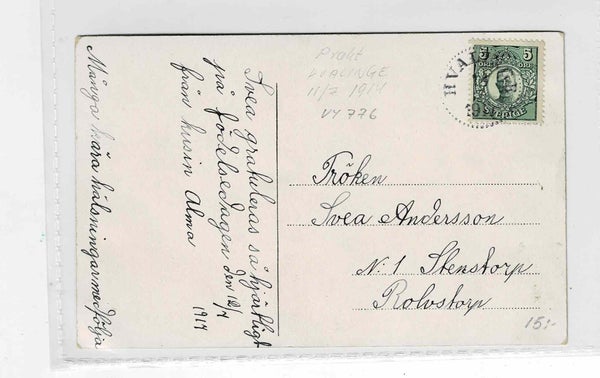 Svea gratuleras så hjärtligt
på födelsedagen den 12/7
från kusin Alma
1914
Många kära hälsningar medfölja
Prakt
HVALINGE
11/7 1914
VY 776
5 5
ÖRE ÖRE
SVERIGE
HVAL
Fröken
Svea Andersson
N. 1 Stenstorp
Rolvstorp
15:-